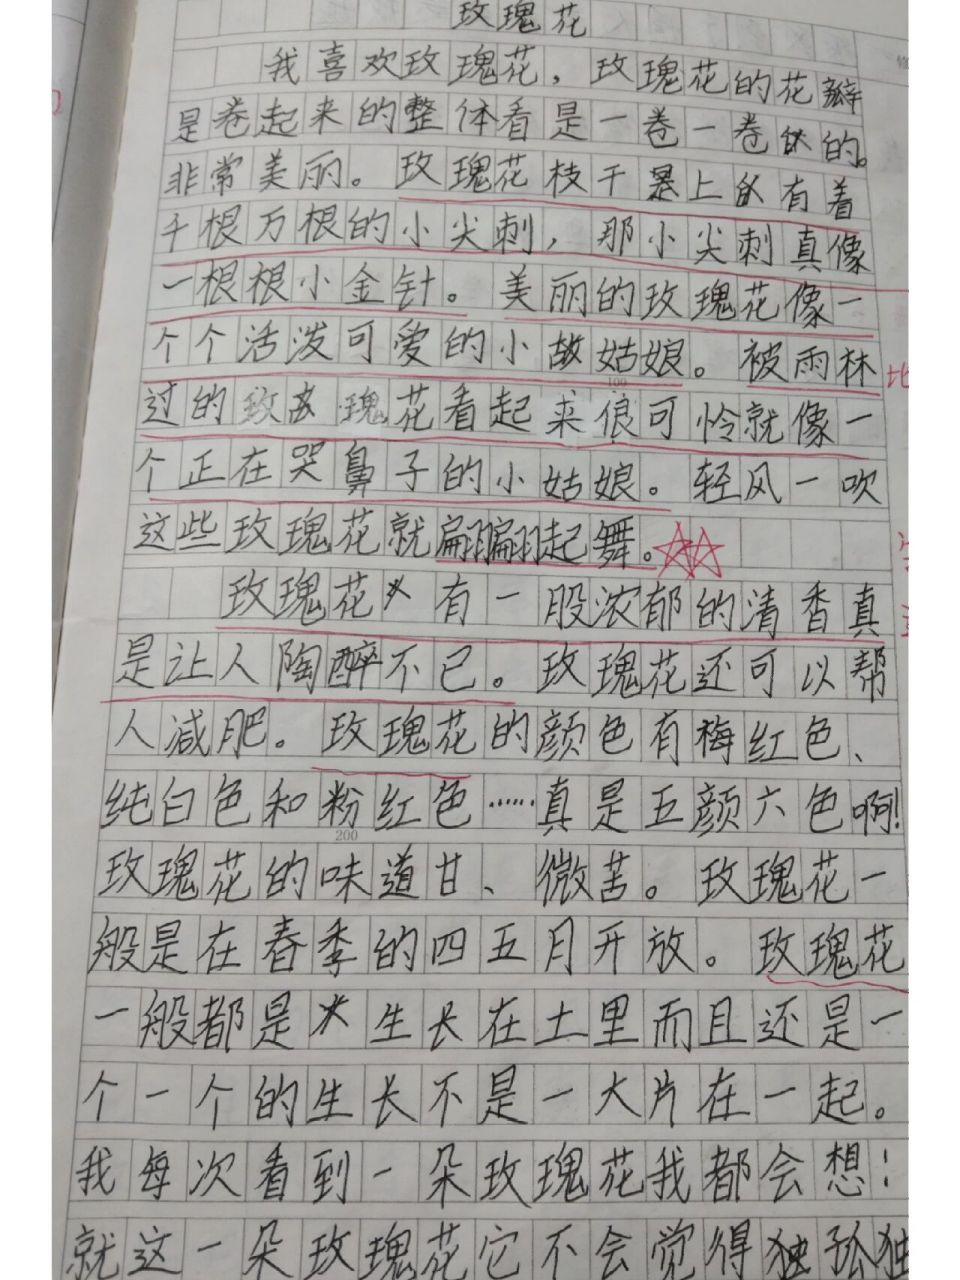 玫瑰花
我喜欢玫瑰花，玫瑰花的花瓣
是卷起来的整体看是一卷一卷的。
非常美丽。玫瑰花枝干是上有着
千根万根的小尖刺，那小尖刺真像
一根根小金针。美丽的玫瑰花像一
个个活泼可爱的小姑娘。被雨林
100
过的玫瑰花看起来很可怜就像一
个正在哭鼻子的小姑娘。轻风一吹
这些玫瑰花就翩翩起舞。
玫瑰花有一股浓郁的清香真
是让人陶醉不已。玫瑰花还可以帮
人减肥。玫瑰花的颜色有梅红色、
纯白色和粉红色……真是五颜六色啊!
200
玫瑰花的味道甘、微苦。玫瑰花一
般是在春季的四五月开放。玫瑰花
一般都是生长在土里而且还是一
个一个的生长不是一大片在一起。
我每次看到一朵玫瑰花我都会想！
就这一朵玫瑰花它不会觉得孤独